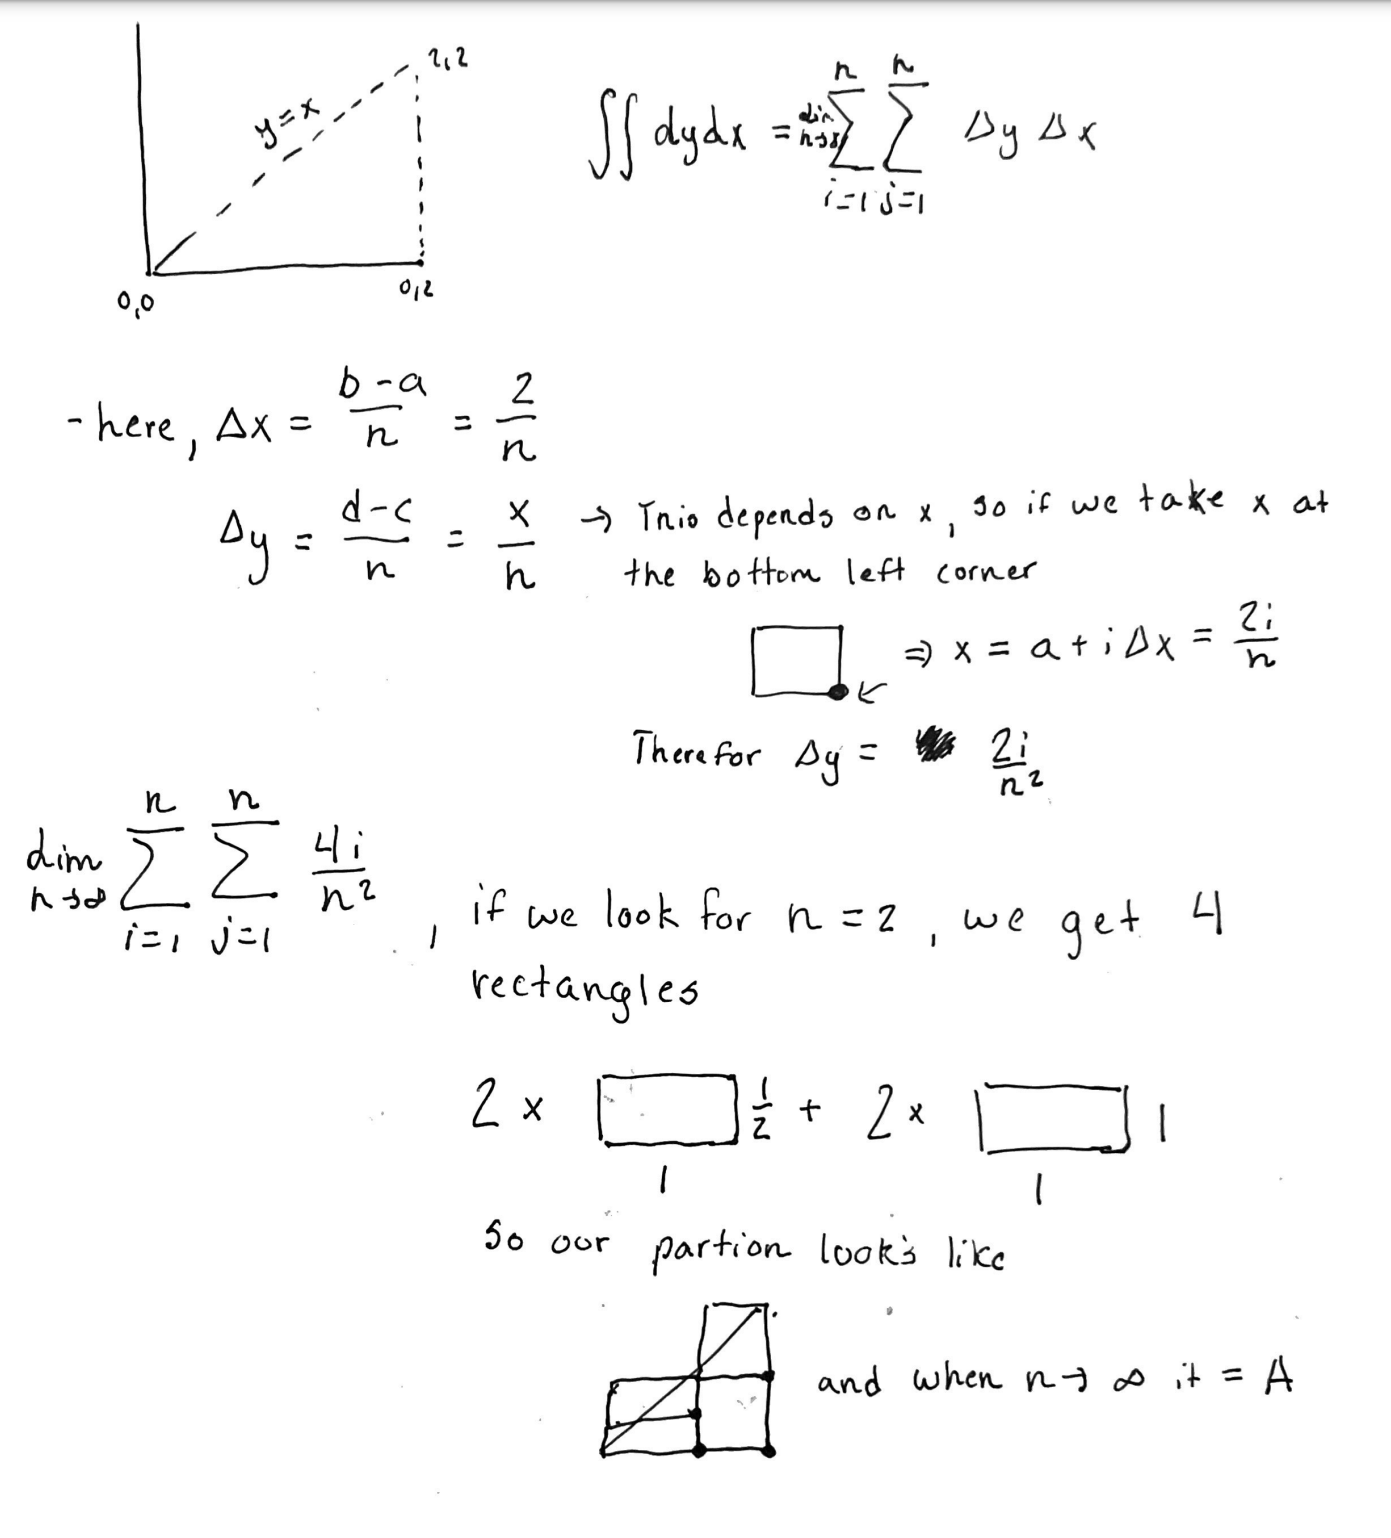 2,2
y=x
∬ dydx = lim n→∞ ∑_{i=1}^{n} ∑_{j=1}^{n} Δy Δx
0,0
0,2
- here, Δx = (b-a)/n = 2/n
Δy = (d-c)/n = x/n → This depends on x, so if we take x at
the bottom left corner
⇒ x = a + iΔx = 2i/n
Therefor Δy = 2i/n²
lim n→∞ ∑_{i=1}^{n} ∑_{j=1}^{n} 4i/n² , if we look for n = 2, we get 4
rectangles
2 × 1/2 + 2 × 1
1 1
So our partion look's like
and when n→∞ it = A